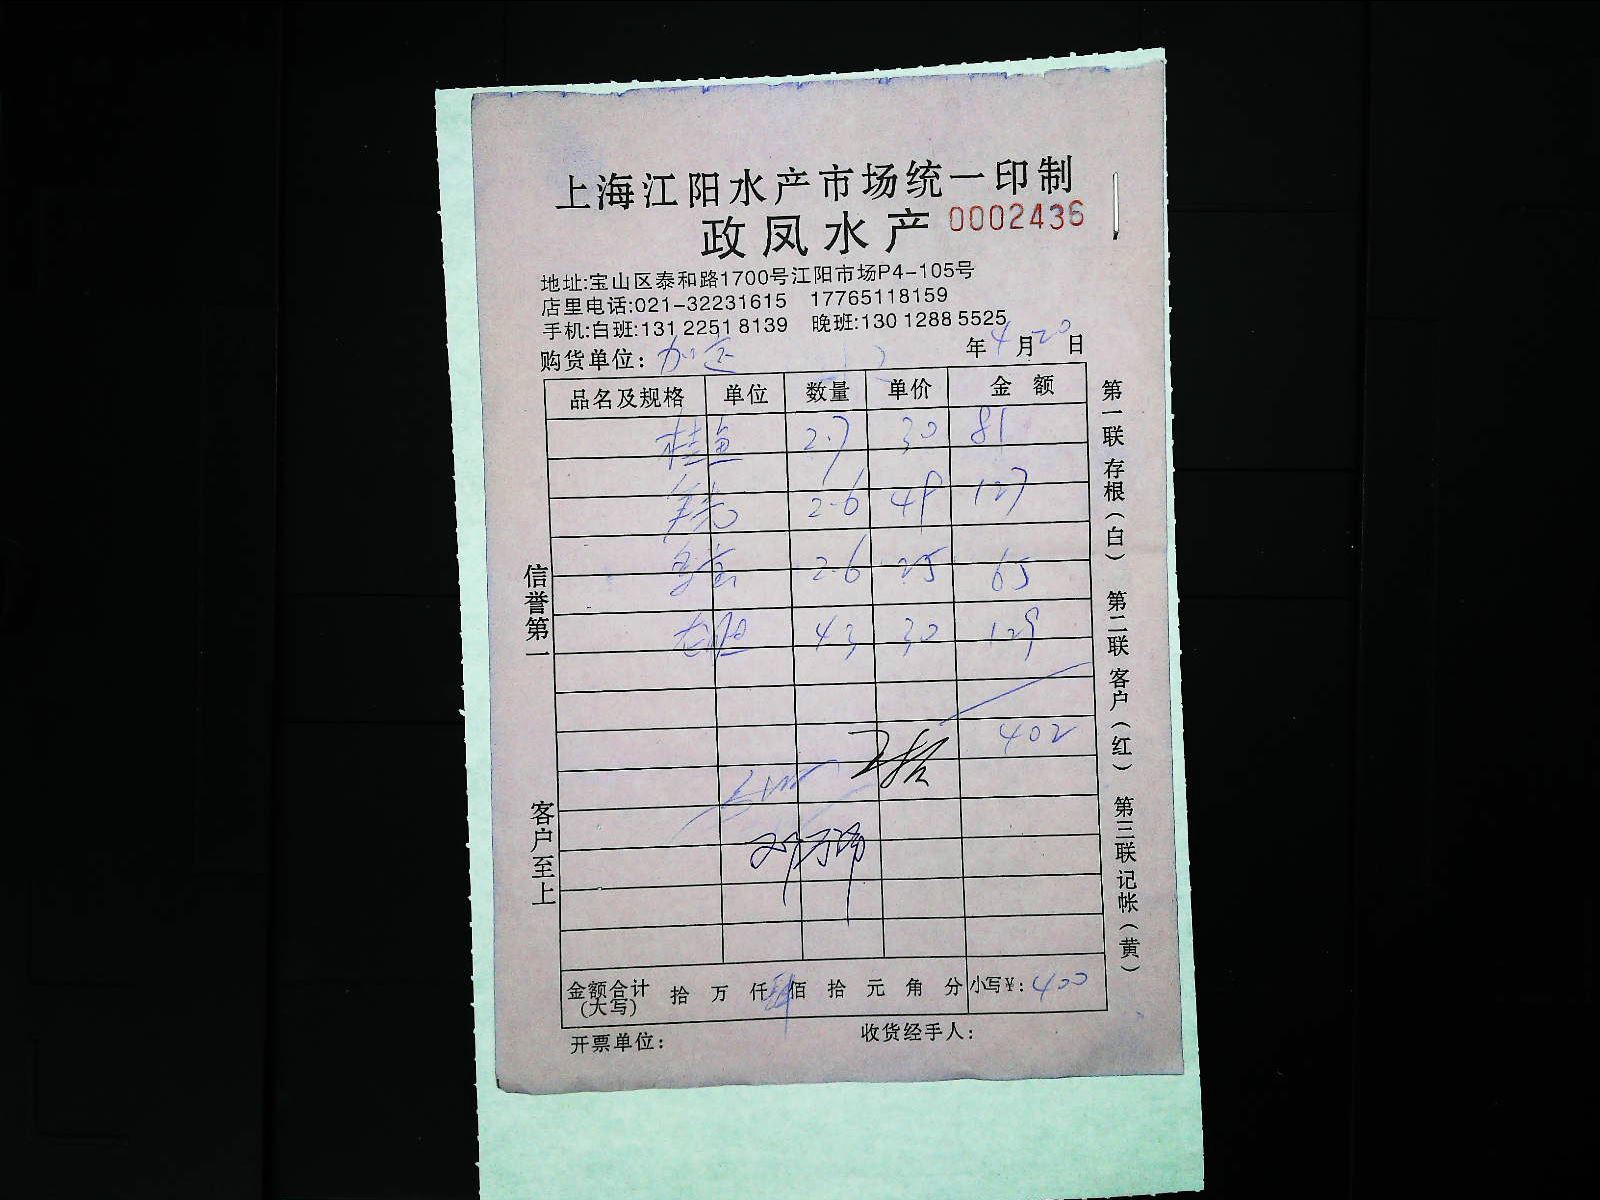 上海江阳水产市场统一印制
政凤水产 0002436
地址:宝山区泰和路1700号江阳市场P4-105号
店里电话:021-32231615 17765118159
手机:白班:131 2251 8139 晚班:130 1288 5525
购货单位: 年4月20日
品名及规格 单位 数量 单价 金额
桂鱼 2.7 30 81
2.6 49 127
2.6 25 65
43 30 129
402
金额合计(大写) 拾 万 仟 肆佰 拾 元 角 分 小写¥:400
开票单位: 收货经手人:
信誉第一
客户至上
第一联 存根(白) 第二联 客户(红) 第三联 记帐(黄)